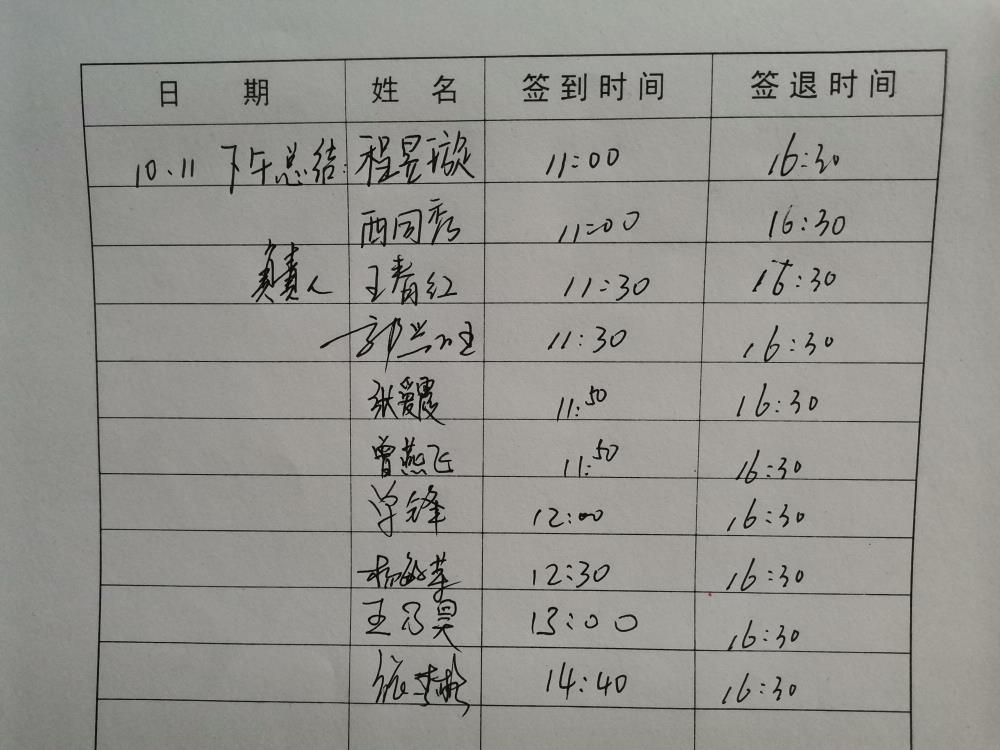 日 期 姓 名 签到时间 签退时间
10.11 下午总结: 程昱璇 11:00 16:30
西同秀 11:00 16:30
负责人 王春红 11:30 16:30
郭兴旺 11:30 16:30
张爱霞 11:50 16:30
曾燕飞 11:50 16:30
学锋 12:00 16:30
杨敏苹 12:30 16:30
王乃昊 13:00 16:30
14:40 16:30